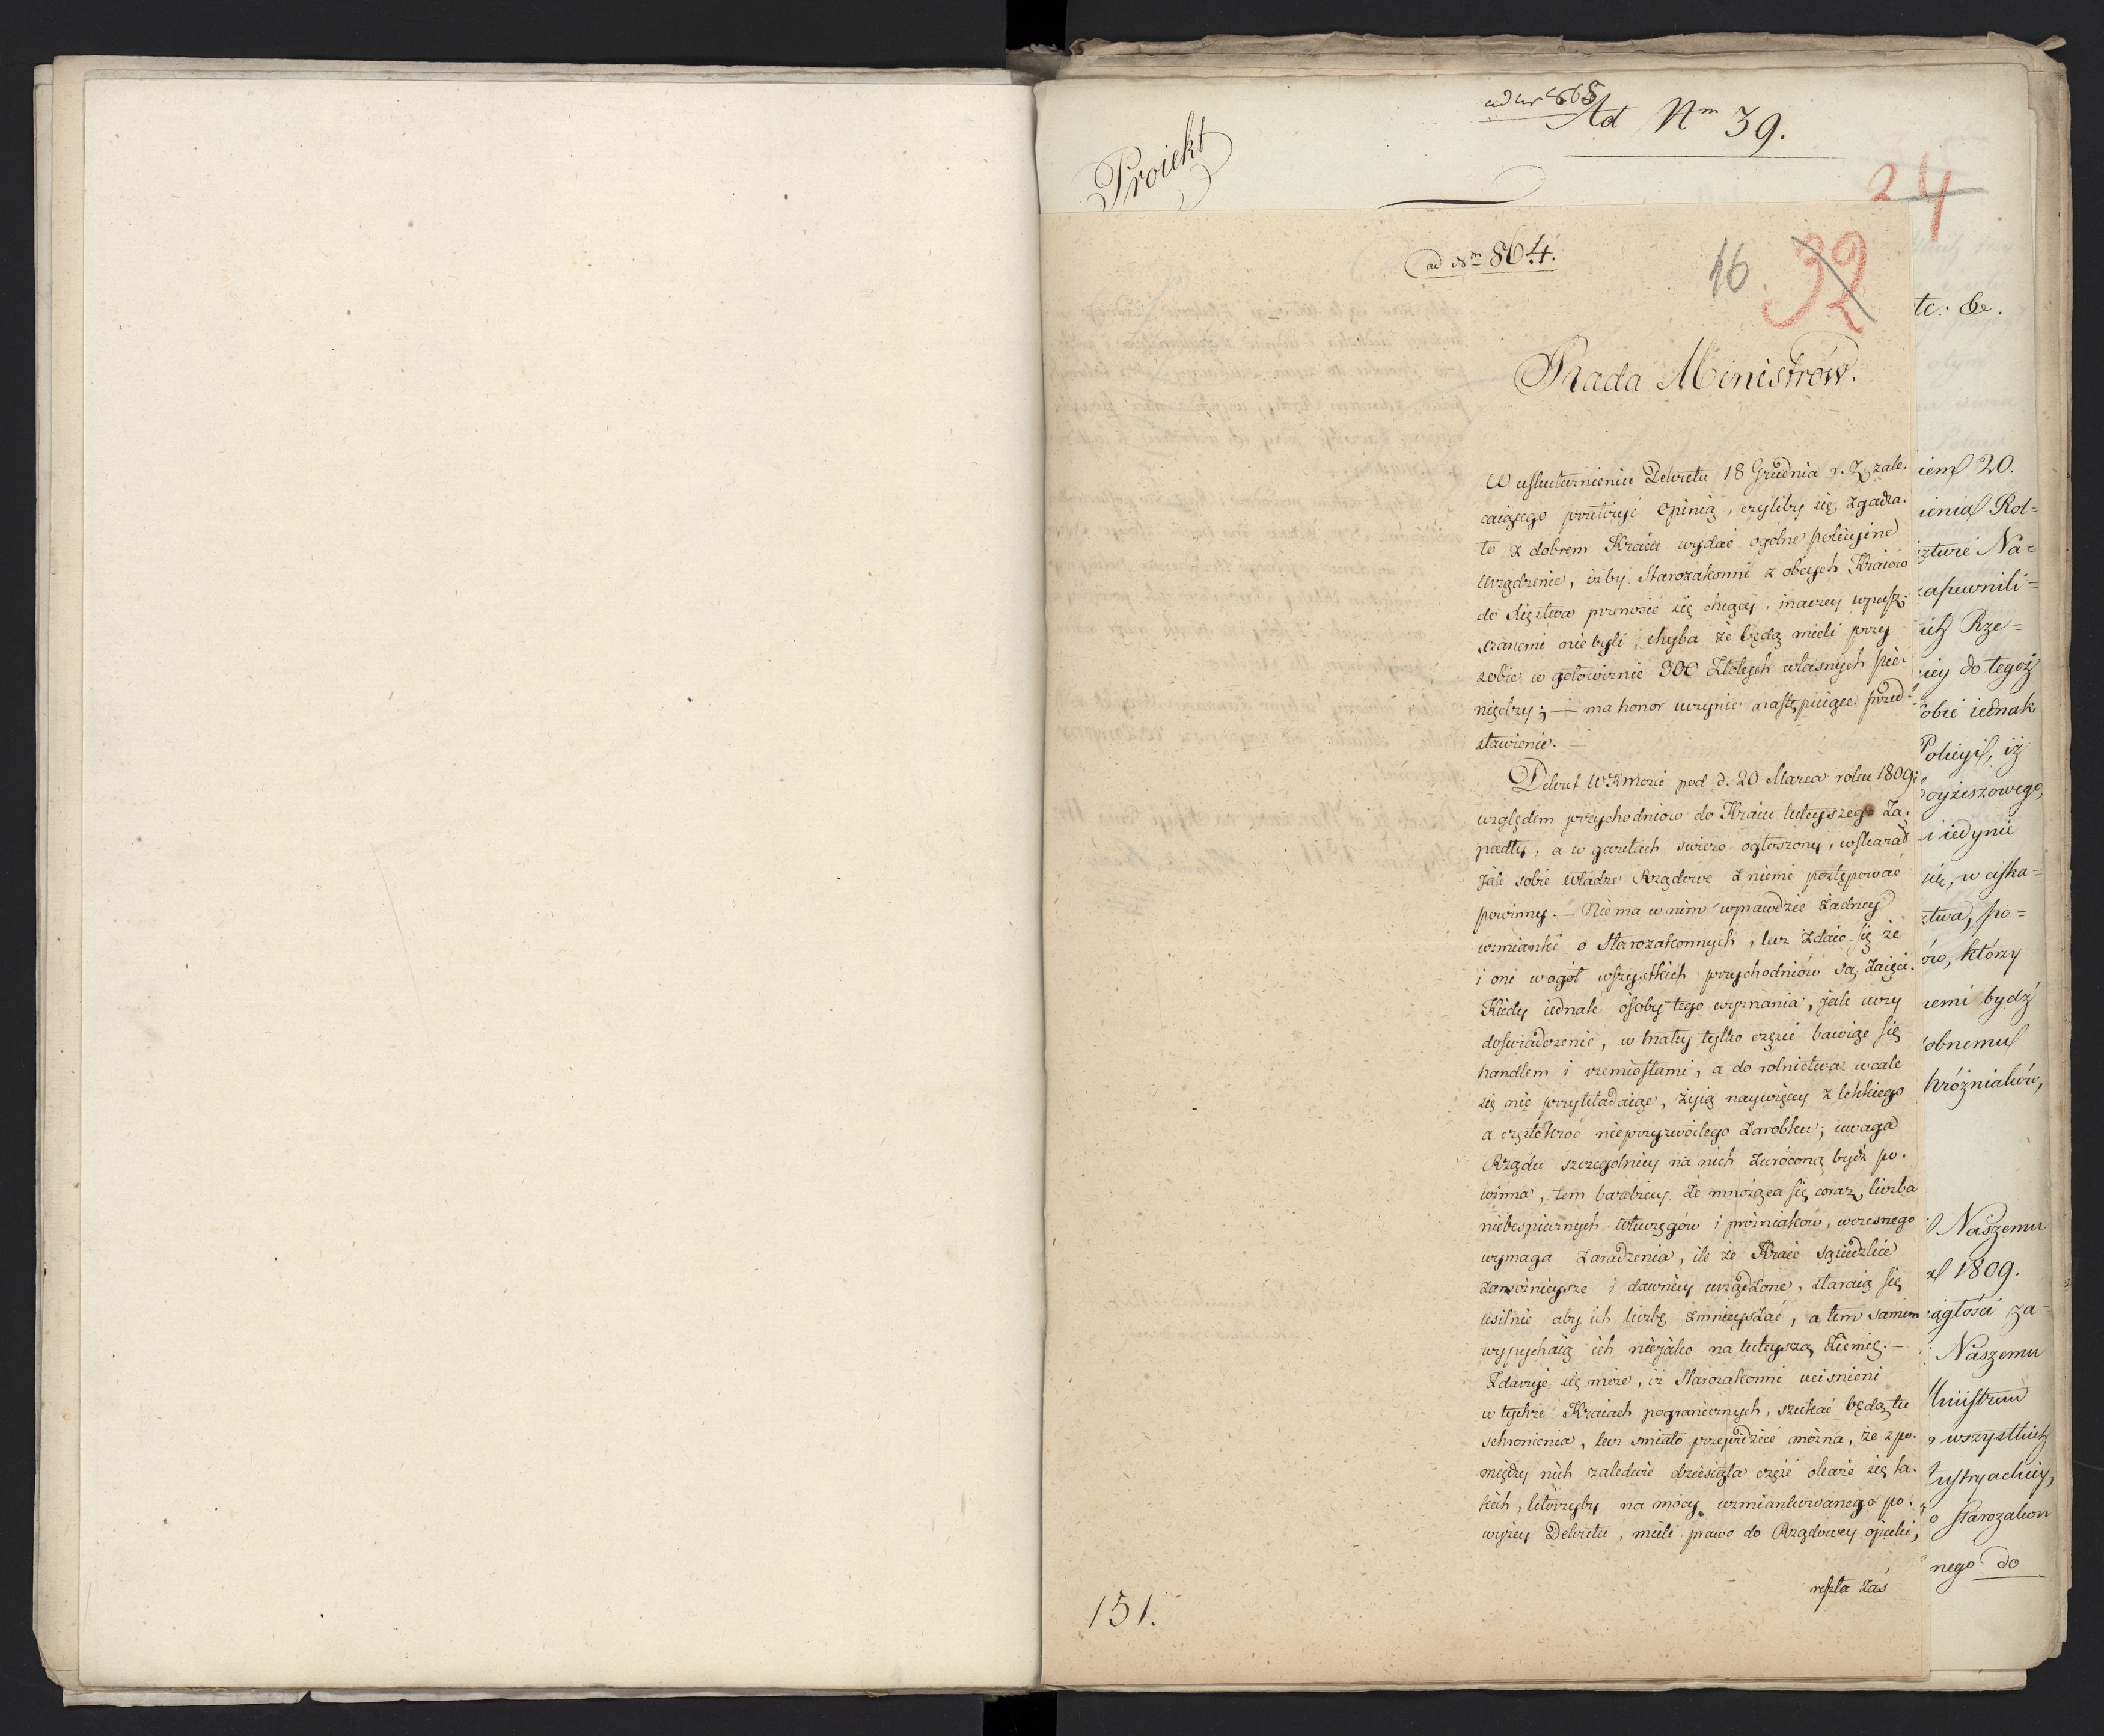 ad nr 868
Ad Nm 39.
Proiekt
24
ad Nm 864.
16 32
Rada Ministrów.
W uskutecznieniu Dekretu 18 Grudnia r. z. zale-
caiącego przełożyć opinią, czyliby się zgadza-
ło z dobrem Kraiu wydać ogólne policyine
urządzenie, iżby Starozakonni z obcych Kraiów
do Xięstwa przenosić się chcący, inaczey wpusz-
szanemi nie byli, chyba że będą mieli przy
sobie w gotowiznie 300 Złotych własnych pie-
niędzy; — ma honor uczynić następuiące przed-
stawienie. —
Dekret WKMości pod d. 20 Marca roku 1809:
względem przychodniów do Kraiu tuteyszego za-
padły, a w gazetach swieżo ogłoszony, wskazał
jak sobie władze Rządowe z niemi postępować
powinny. — Nie ma w nim wprawdzie żadney
wzmianki o Starozakonnych, lecz zdaie się że
i oni w ogół wszystkich przychodniów są zaięci.
Kiedy iednak osoby tego wyznania, jak uczy
doswiadczenie, w małey tylko części bawiąc się
handlem i rzemiosłami, a do rolnictwa wcale
się nie przykładaiąc, żyią naywięcey z lekkiego
a częstokroć nieprzyzwoitego zarobku; uwaga
Rządu szczegolniey na nich zwróconą bydź po-
winna, tem bardziey że mnożąca się coraz liczba
niebespiecznych włuczęgów i próżniaków, wczesnego
wymaga zaradzenia, ile że Kraie sąsiedzkie
zamożnieysze i dawniey urządzone, staraią się
usilnie aby ich liczbę zmnieyszać, a tem samem
wypychaią ich nieiako na tuteyszą Ziemię. —
Zdarzyć się może, iż Starozakonni ucisnieni
w tychże Kraiach pogranicznych, szukać będą tu
schronienia, lecz smiało przewidzieć można, że z po-
między nich zaledwie dziesiąta część okaże się ta-
kich, którzyby na mocy wzmiankowanego po-
wyżey Dekretu, mieli prawo do Rządowey opieki,
reszta zaś
151.
tc: &c.
iem 20.
ienia Rol=
ztwie Na=
zapewnili=
ich Rze=
iey do tegoż
obie iednak
Policyi, iż
oyższowego,
i iedynie
ztwa, po=
ów, którzy
iemi bydź
obnemu
próżniaków,
Naszemu
1809.
iągłości za-
Naszemu
wszystkich
ustryackiey,
o Starozakon
nego do